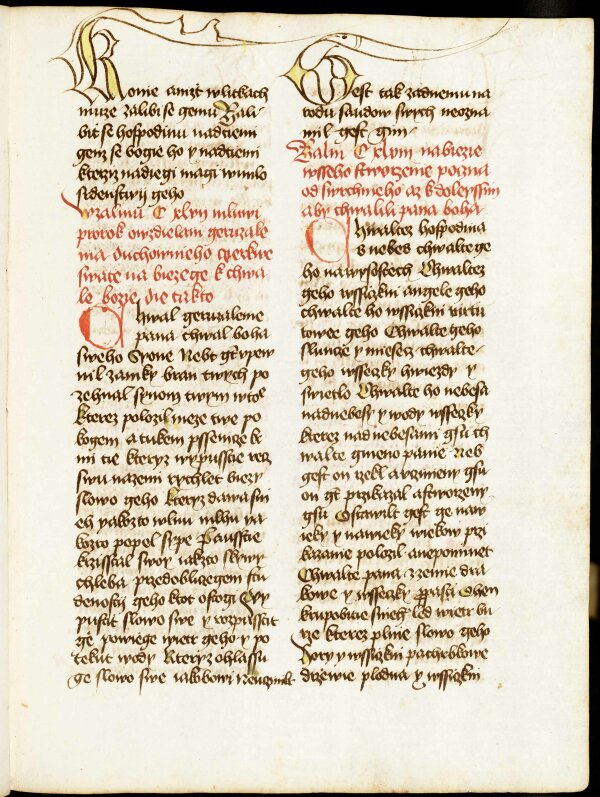 Konie ani w litkach
muze zalibi se gemu Zali-
bit se hospodinu nad temi
genz se bogie ho y nad temi
kterziz nadiegi magi w milo
sidenstwy geho
W zalmu C xlvii mluwi
prorok
ma duchownieho czierkwe
swate na bieze ge k chwa
le bozie die takto
Chwal geruzaleme
pana chwal boha
sweho Syone Nebt gt vpew
nil zamky bran twych po
zehnal synom twym w tobie
Kterez polozil meze twe po
kogem a tukem psseniczie k
mi tie Kteryz wypusstie rzecz
swu na zemi rychlet biezy
slowo geho Kteryz dawa snieh
yakozto wlnu mlhu ya
kozto popel sype Pausstie
krzisstal swoy iakzto skywy
chleba przed oblicziegem stu
denosti geho kto ostogi Wy
pustit slowo swe y rozpusstit
ge powiege wietr geho y po
tekut wody Kteryz ohlassu
ge slowo swe iakobowi Neuczinilt
gest tak zadnemu na
rodu saudow swych neozna
mil gest gim
Zalm C xlviii nabiezie
wsseho stworzenie poczna
od swrchnieho az k dolegssim
aby chwalili pana boha
Chwaltez hospodina
s nebes chwalte ge
ho na wysostech Chwaltez
geho wssiczkni angele geho
chwalte ho wssiczkni
towee geho Chwalte geho
slunze y miesiecz chwalte
geho wsseczky hwiezdy y
swietlo Chwalte ho nebesa
nad nebesy y wody wsseczky
kterez nad nebesami gsu ch
walte gmeno panie Neb
gest on rzekl a vczinieny gsu
on gt przikazal a stworzeny
gsu Ostawilt gest ge na w
ieky y na wieky wiekow przi
kazanie polozil a nepominet
Chwalte pana z zemie dra
kowe y wsseczky propasti Ohen
krupobitie snieh led wietr bu
rze kterez plnie slowo geho
Hory y wssiczkni pachrbkowe
drziewie plodna y wssiczkni